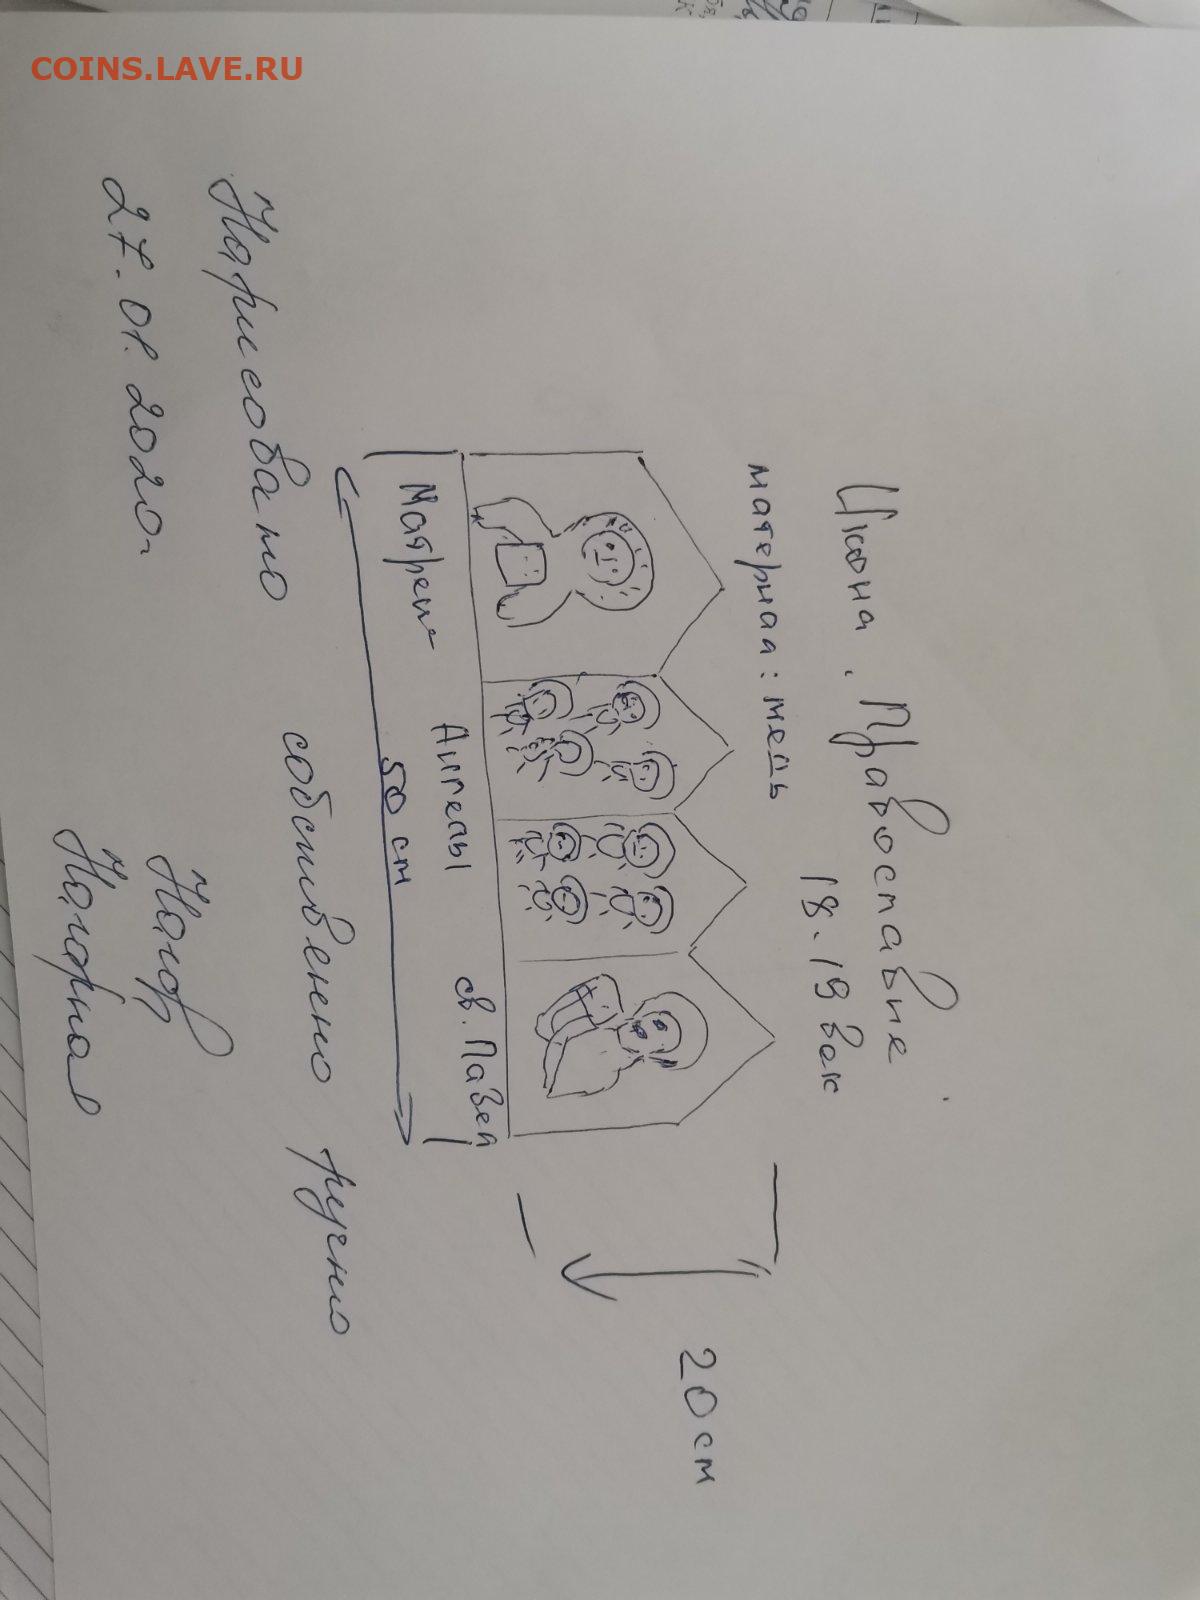 COINS.LAVE.RU
Икона. Православие
материал: медь 18.19 век
20 см
Матрена Ангелы св. Павел
50 см
Нарисовано собственно ручно
27.08.2020.